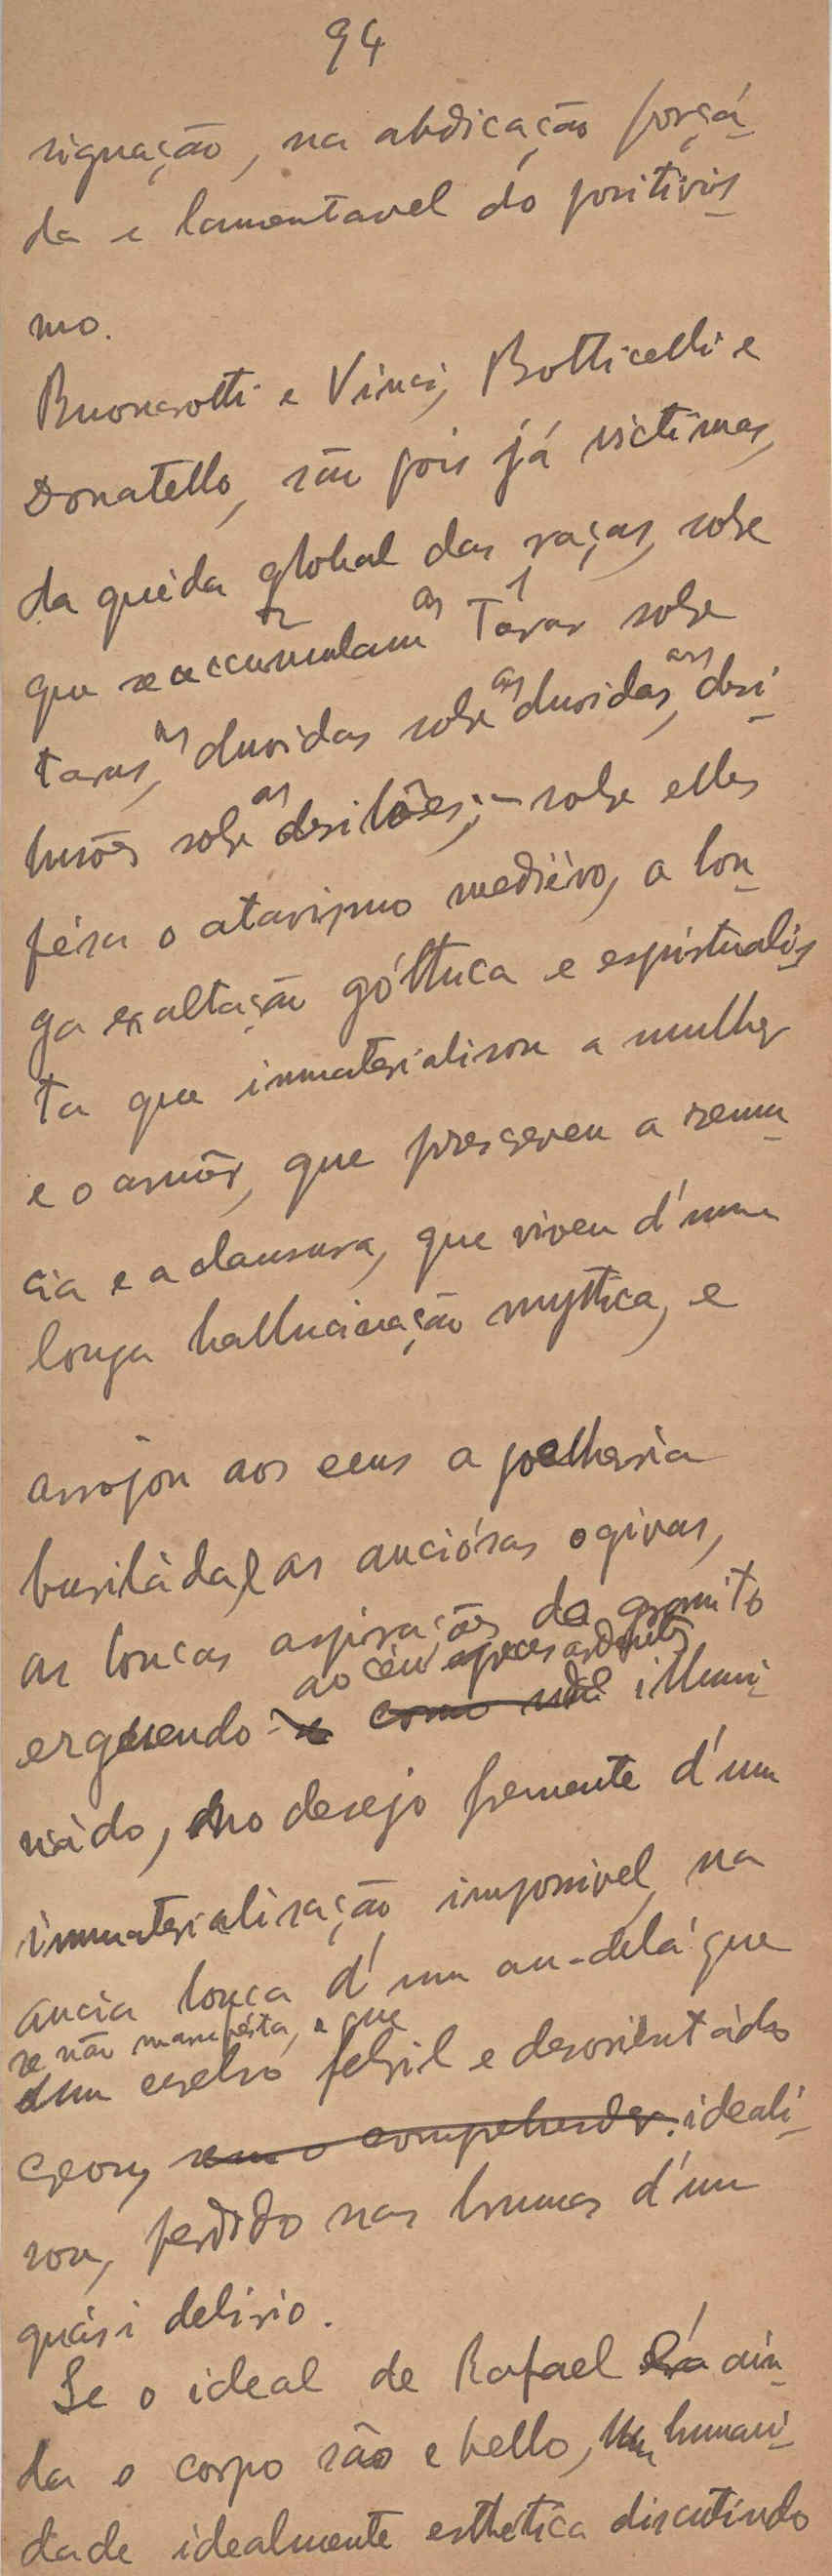 94
signação, na abdicação forçá-
da e lamentavel do positivis-
mo.
Buonarotti e Vinci, Botticelli e
Donatello, são pois já victimas,
da quéda global das raças, sobre
que se accumulam as táras sobre
taras, as duvidas sobre as duvidas, as desi-
lusões sobre as desilões; - sobre elles
pésa o atavismo mediévo, a lon-
ga exaltação góthica e espiritualis-
ta que immaterialisou a mulher
e o amôr, que prescreveu a renun-
cia e a clausura, que viveu d'uma
longa hallucinação mythica, e
arrojou aos ceus a joelharia
burilàda, as anciósas ogivas,
as loucas aspirações de granito
ao céu preces ardentes
erguendo e como illumi-
nàdo, no desejo fremente d'um
immaterialisação impossivel, na
ancia louca d'um au-delá que
se não manifésta, e que
um cerebro febril e desorientádo
creou, sem o comprehender. ideali-
sou, perdido nas brumas d'um
quási delirio.
Se o ideal de Rafael é ain-
da o corpo são e bello, humani-
dade idealmente esthetica discutindo